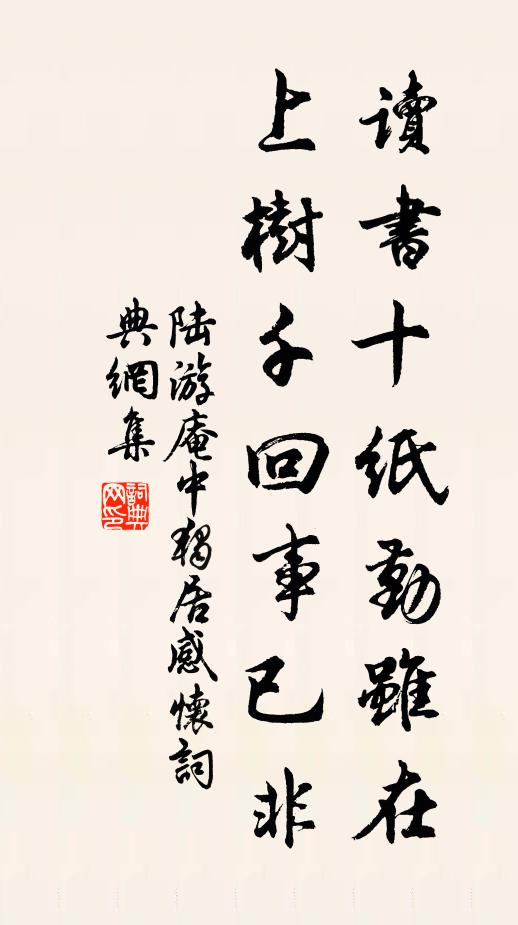 讀書十紙勤雖在
上樹千回事已非
陸游庵中獨居感懷詞
典網集
詞典
网印